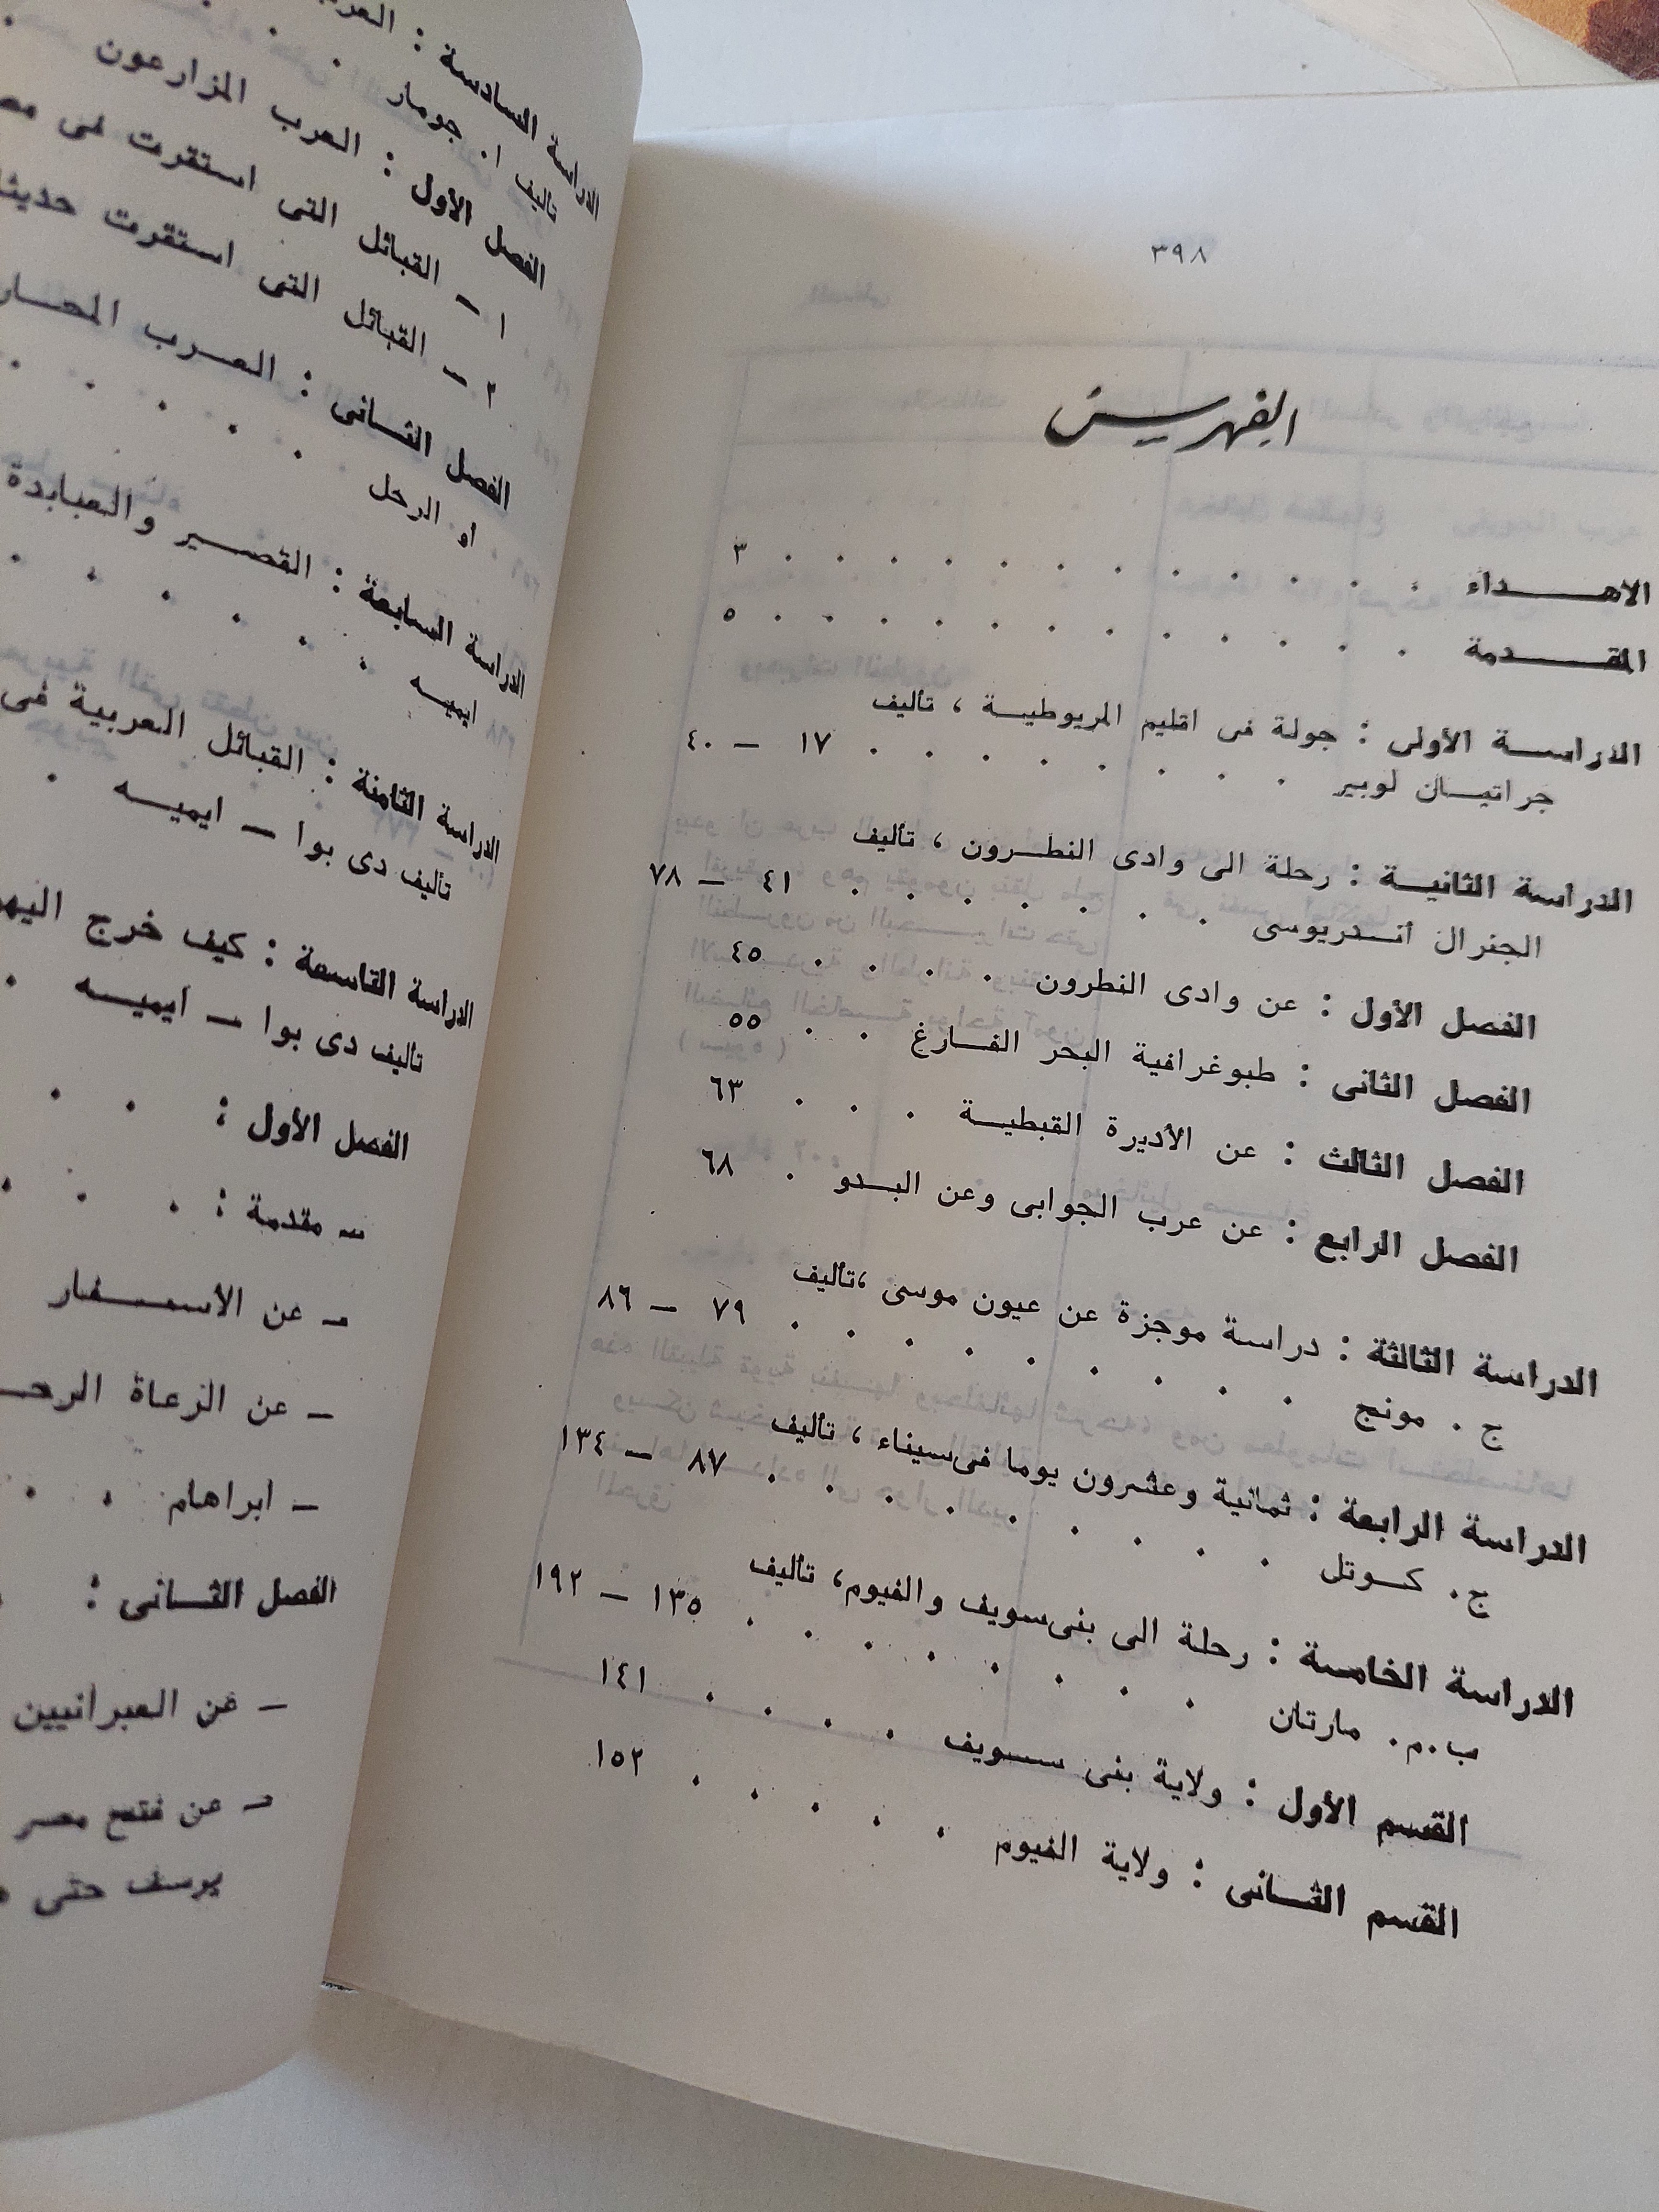 ٣٩٨
الفهرس
الاهـــداء . . . . . . . . . . . . ٣
المقـــدمة . . . . . . . . . . . . ٥
الدراســـة الأولى : جولة فى اقليم المريوطيـــة ، تأليف
جراتيــان لوبير . . . . . . . . ١٧ – ٤٠
الدراسة الثانيـــة : رحلة الى وادى النطــرون ، تأليف
الجنرال أنـــدريوسى . . . . . . . ٤١ – ٧٨
الفصل الأول : عن وادى النطرون . . . . ٤٥
الفصل الثانى : طبوغرافية البحر الفـــارغ . . ٥٥
الفصل الثالث : عن الأديرة القبطيـــة . . . ٦٣
الفصل الرابع : عن عرب الجوابى وعن البــدو . ٦٨
الدراسة الثالثة : دراسة موجزة عن عيون موسى ،تأليف
ج . مونج . . . . . . . . . ٧٩ – ٨٦
الدراسة الرابعة : ثمانية وعشرون يوما فى سيناء ، تأليف
ج. كـــوتل . . . . . . . . . ٨٧ – ١٣٤
الدراسة الخامسة : رحلة الى بنى سويف والفيوم، تأليف
ب.م. مارتان . . . . . . . . ١٣٥ – ١٩٢
القسم الأول : ولاية بنى ســـويف . . . . ١٤١
القسم الثــانى : ولاية الفيوم . . . . . ١٥٢
الدراسة السادسة :
تأليف ا. جومار .
الفصل الأول : العرب المزارعون
١ – القبائل التى استقرت فى
٢ – القبائل التى استقرت
الفصل الثــانى : العــرب
او الرحل . . . . . .
الدراسة السابعة : القصـــير والعبابدة
ايميــه . . . . . .
الدراسة الثامنة : القبائل العربية فى
تأليف دى بوا – ايميــه .
الدراسة التاسعة : كيف خرج
تأليف دى بوا – ايميــه .
الفصل الأول : . .
– مقدمة : . . .
– عن الأســـفار
– عن الرعاة
– ابراهام . . .
الفصل الثــانى :
– عن العبرانيين
– عن فتح مصر
يوسف حتى